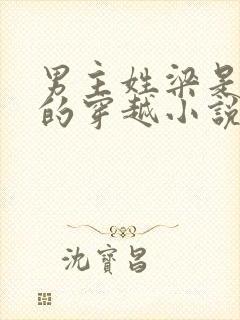 男主姓梁是
的穿越小說
沈寶昌